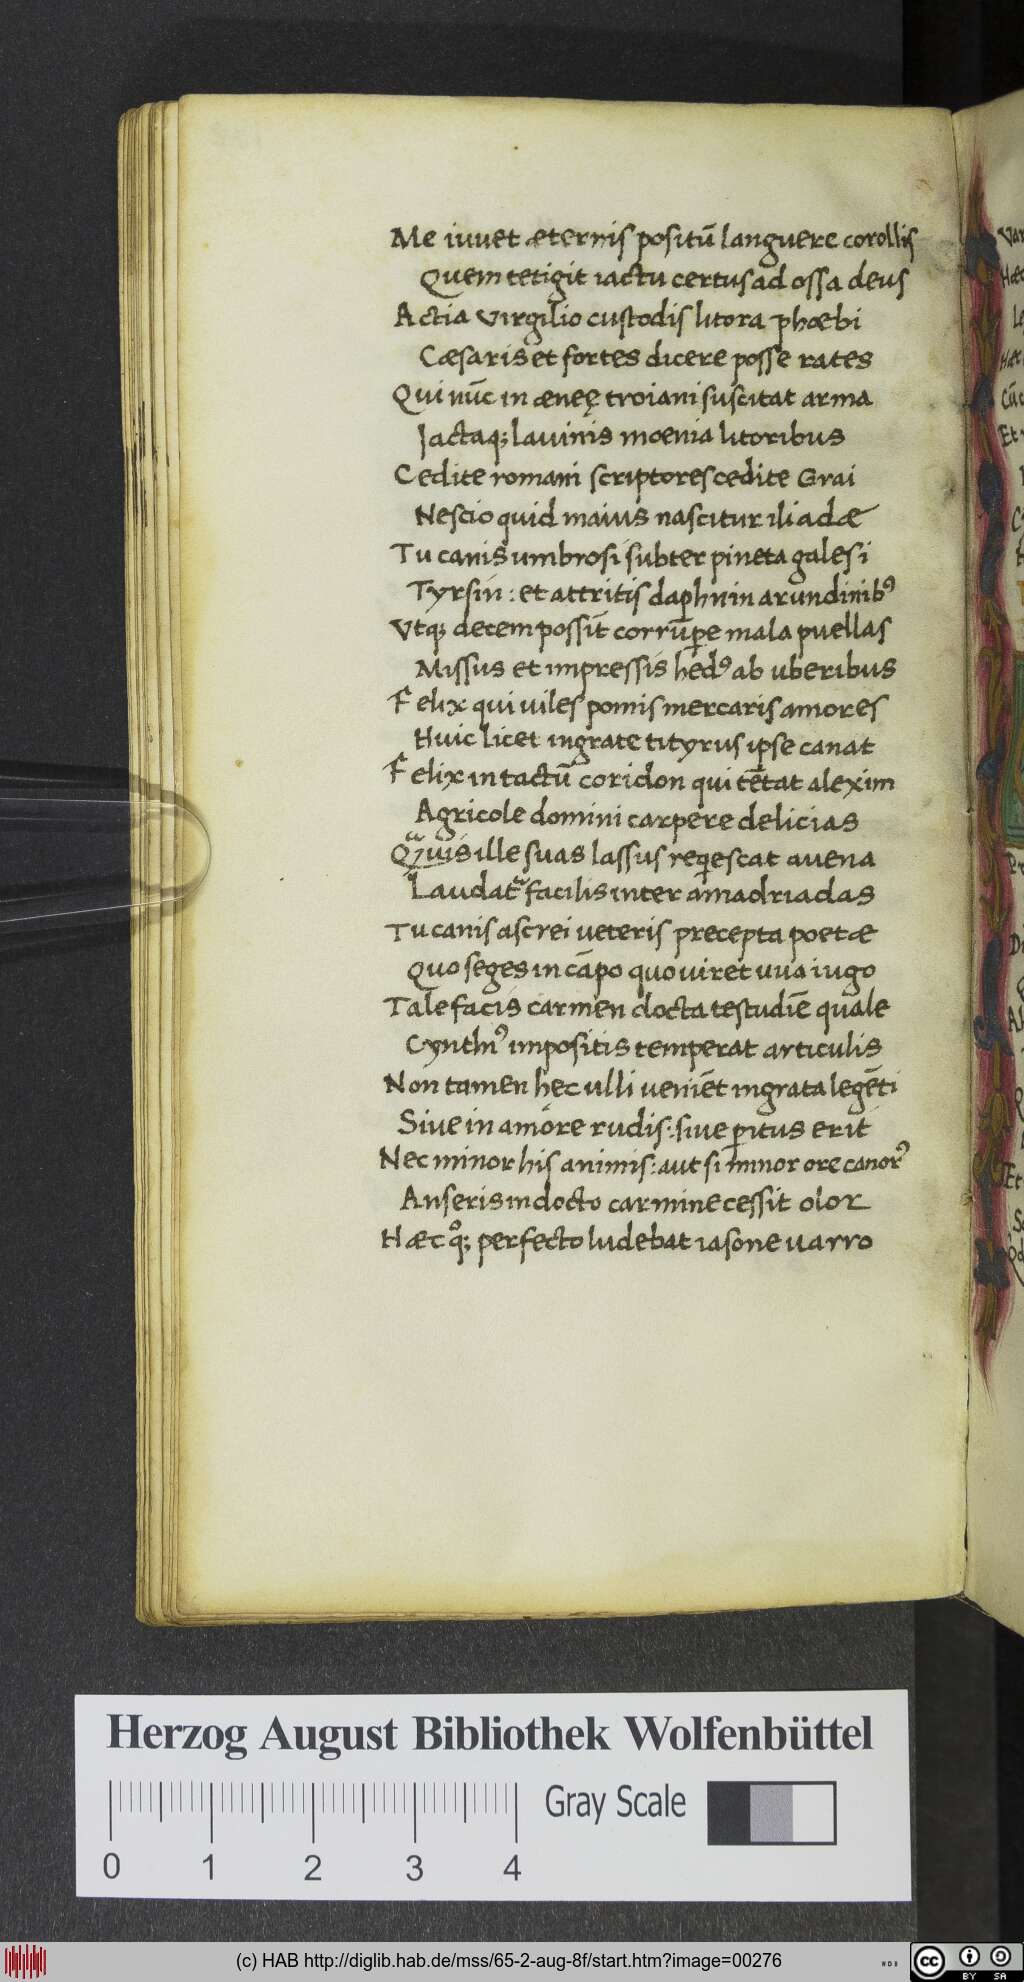 Me iuuet æternis positū languere corollis
Quem tetigit iactu certus ad ossa deus
Actia virgilio custodis litora phœbi
Cæsaris et fortes dicere posse rates
Qui nūc in æneę troiani suscitat arma
Jactaq; lauinis moenia litoribus
Cedite romani scriptores cedite Grai
Nescio quid maius nascitur iliadæ
Tu canis umbrosi subter pineta galesi
Tyrsin: et attritis daphnin arundinibꝰ
Vtq; decem possīt corrūpe mala puellas
Missus et impressis hedꝰ ab uberibus
Felix qui uiles pomis mercaris amores
Huic licet ingrate tityrus ipse canat
Felix intactū coridon qui tētat alexim
Agricole domini carpere delicias
Quis ille suas lassus reqescat auena
Laudat facilis inter amadriadas
Tu canis ascrei ueteris precepta poetæ
Quo seges in cāpo quo uiret uua iugo
Tale facis carmen docta testudīe quale
Cynthꝰ impositis temperat articulis
Non tamen hec ulli ueniēt ingrata legēti
Siue in amore rudis: siue pitus erit
Nec minor his animis: aut si minor ore canorꝰ
Anseris indocto carmine cessit olor
Hæc qͦ; perfecto ludebat iasone uarro
Herzog August Bibliothek Wolfenbüttel
Gray Scale
0 1 2 3 4
(c) HAB http://diglib.hab.de/mss/65-2-aug-8f/start.htm?image=00276
cc BY SA